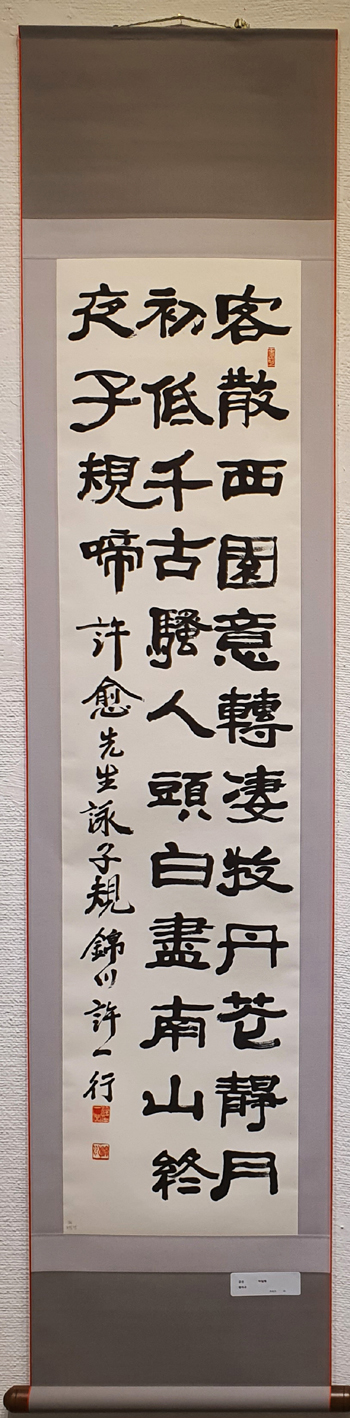 客散西園意轉凄牧丹花靜月
初低千古騷人頭白盡南山終
夜子規啼 許愈先生詠子規 錦川 許一行